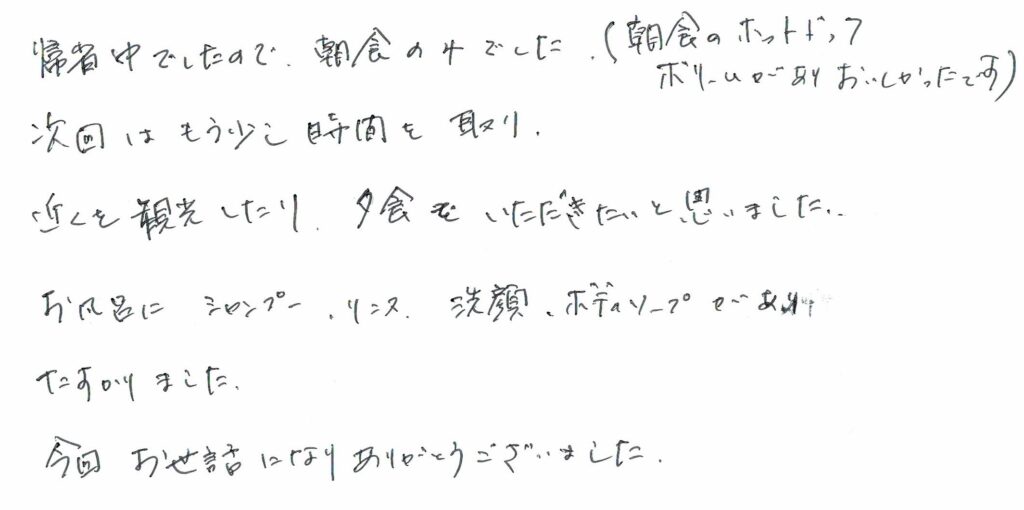 帰省中でしたので、朝食のみでした。(朝食のホットドック
ボリュームがありおいしかったです)
次回はもう少し時間を取り、
近くを観光したり、夕食をいただきたいと思いました。
お風呂にシャンプー、リンス、洗顔、ボディソープがあり
たすかりました。
今回お世話になりありがとうございました。